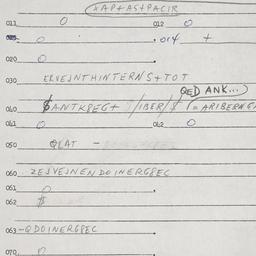 *AP+AS+PACIR
011 0 012 0
0 . 014 +
020 0 .
030 ERVEJNTHINTERNS+TOT
QED ANK...)
040 $ANTKPEG+ /IBER/$ (=ARIBERW
041 0 042 0
050 QLAT -
060 ZESVEJNENDOINERGPEC
061 0 .
062 $
063 -QDOINERGPEC .
070 0